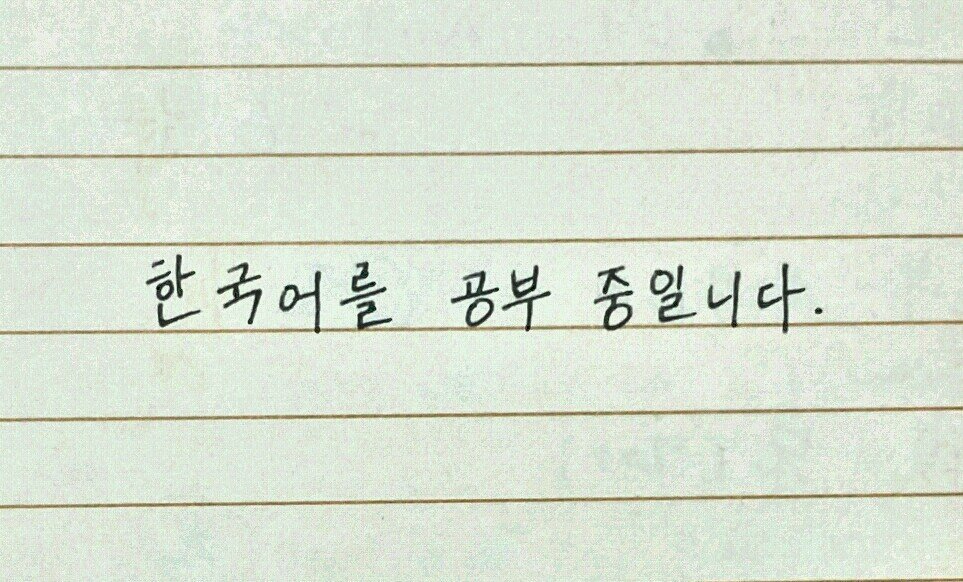 한국어를 공부 중일니다.